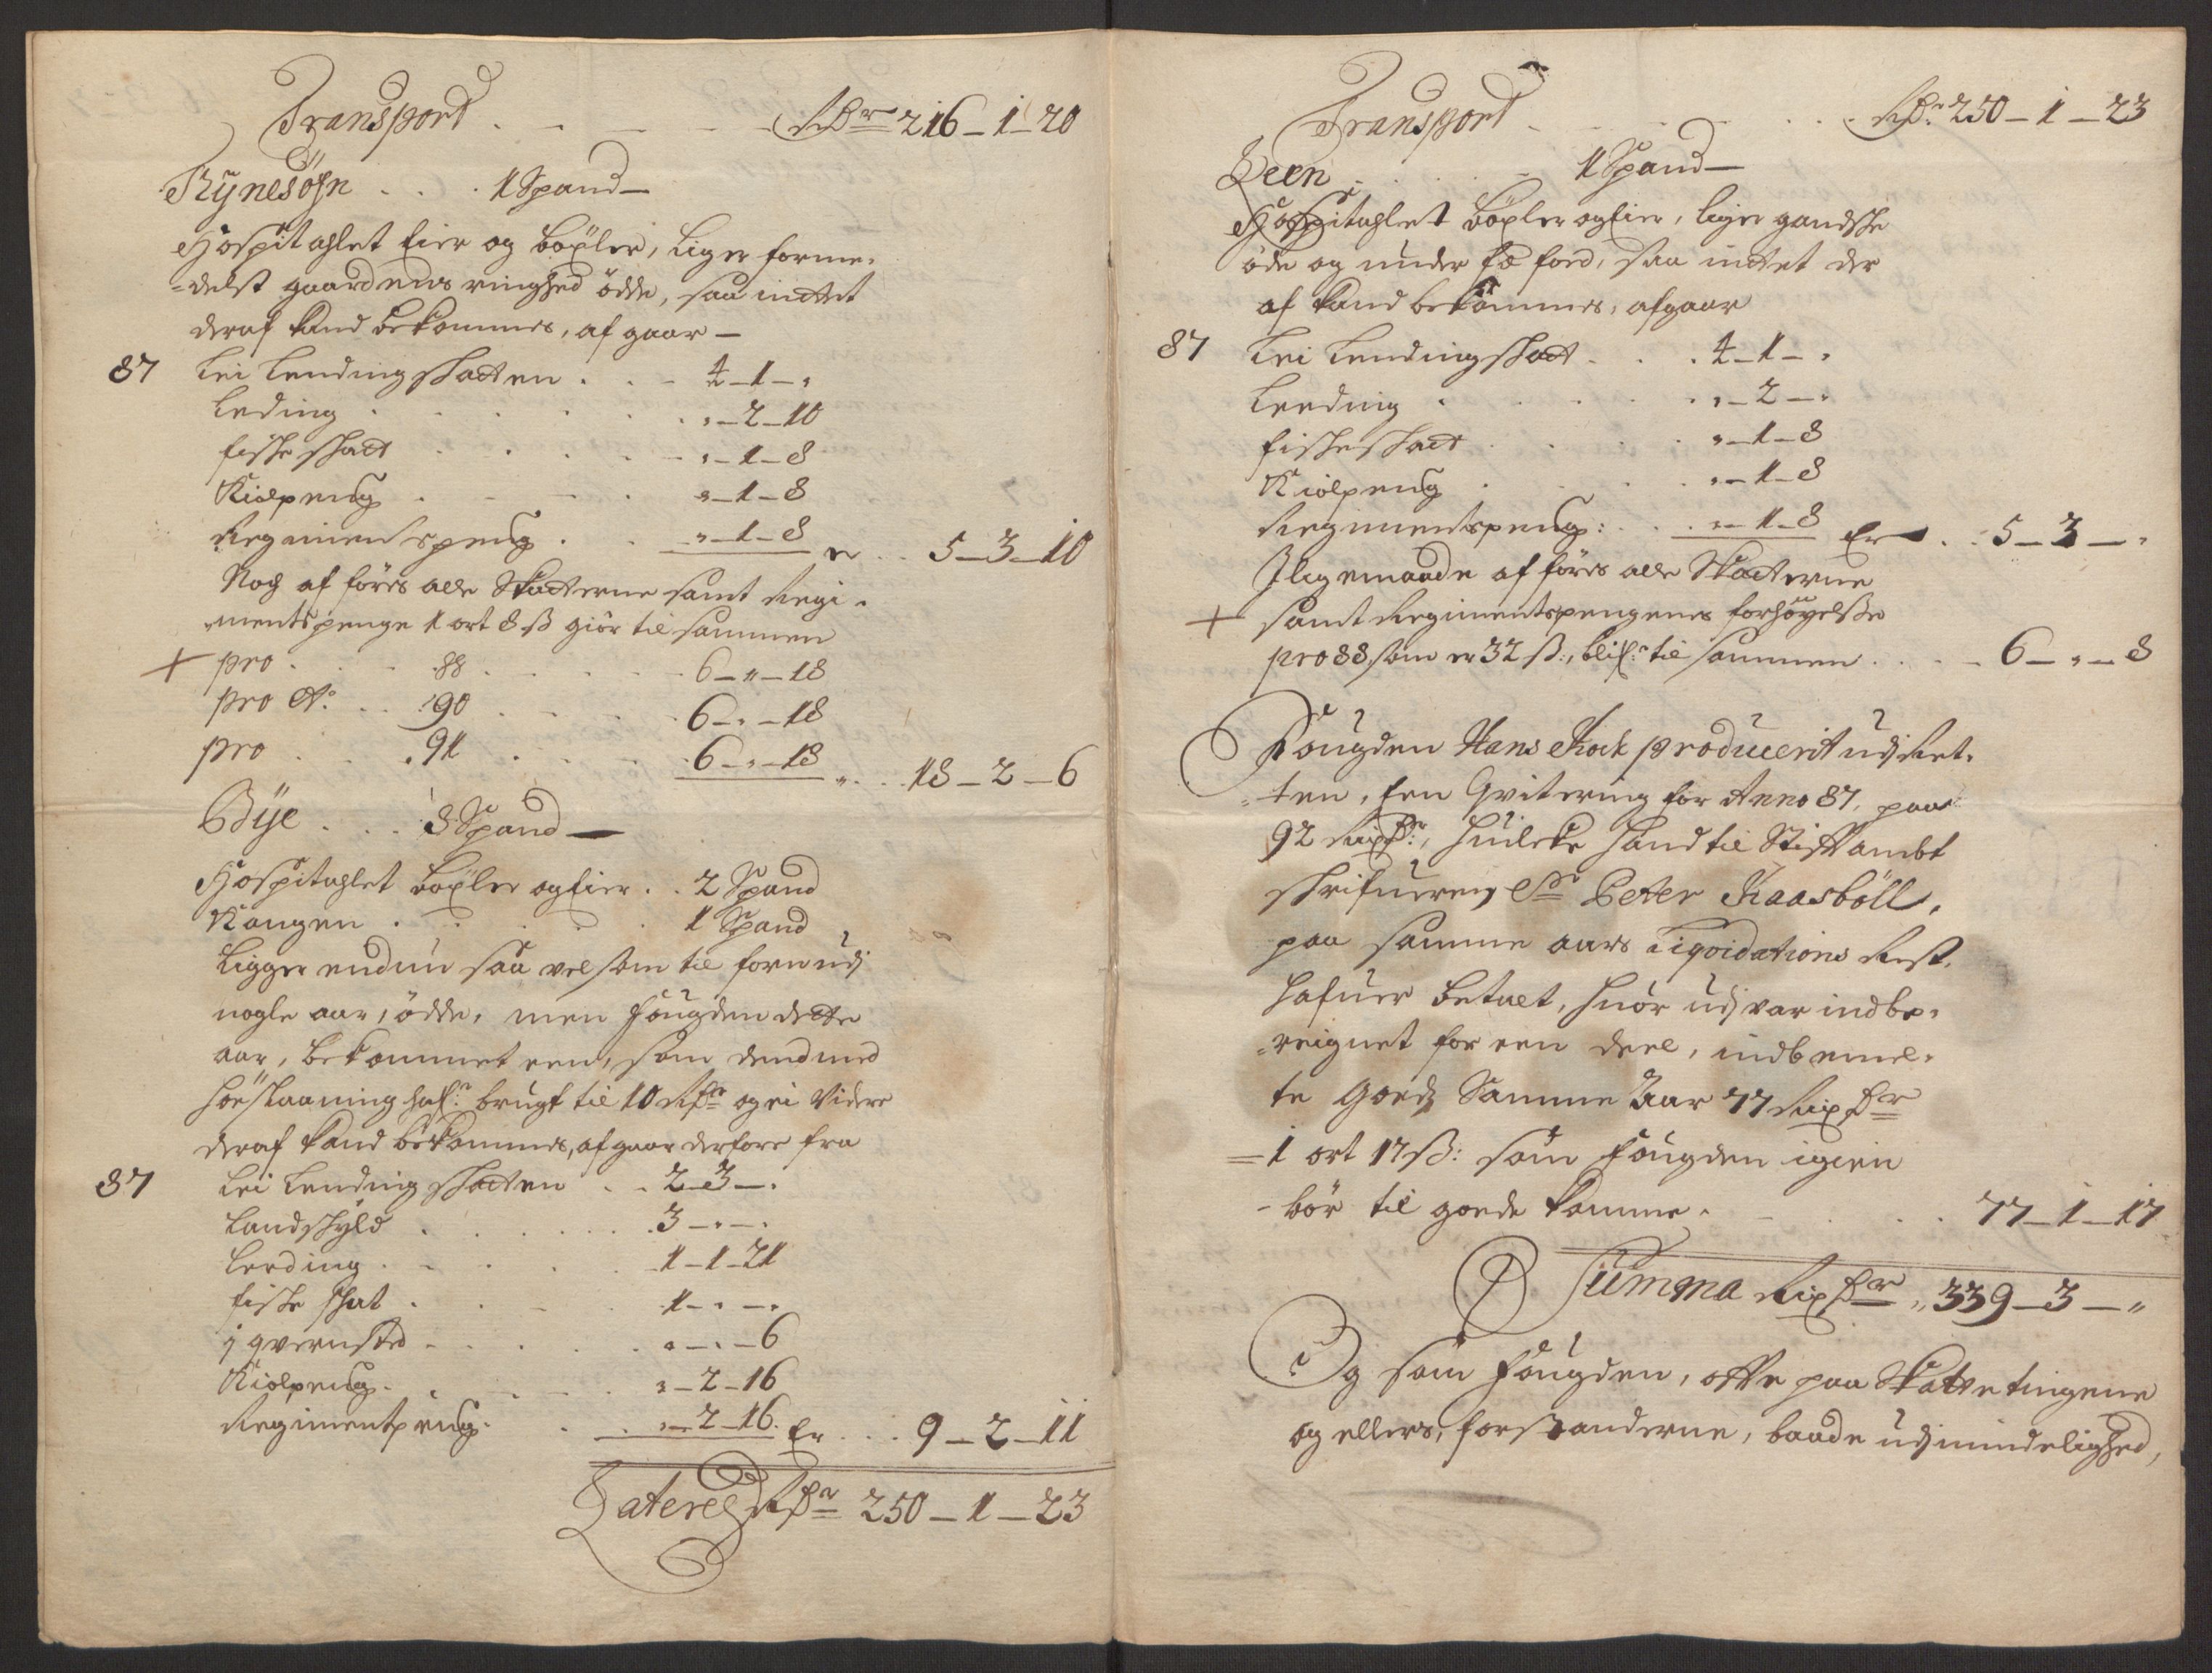 Transport . . . . Rdr 216_1_20
Rÿnesøgn . . . 1 Spand_
Hospitahlet Eier og böxler, Liger forme-
-delst gaardens ringhed ödde, saa inttet
deraf kand bekommes, afgaar_
87 Leilendingskatten . . . 4_1_"
Leding . . . . . "_2_10
fiske skatt . . . . "_1_8
Kiolpeng . . . . "_1_8
Regimentspeng . . "_1_8 er . . 5_3_10
Noch afföres alle Skatterne samt Regi-
-mentspenge 1 ort 8 ß giör tilsammen
+ pro . . . 88 . . . . 6_"_18
pro Ao: . . 90 . . . . 6_"_18
pro . . . 91 . . . . 6_"_18 " . . 18_2_6
Bÿe . . . 3 Spand_
Hospitahlet böxler og Eier . . 2 Spand
Kongen . . . . . 1 Spand
Ligger endnu saa vel som til forn udj
nogle aar, ödde, men fougden dette
aar, bekommet een, som dend med
höeslaaning hafr: brugt til 10 Rdr og ei Videre
deraf kand bekommes, afgaar derfore fra
87 Leilendingskatten . . 2_3_"
Landskyld . . . . . 3_"_"
Leeding . . . . . 1_1_21
fiske skat . . . . 1_"_"
j qvernsted . . . . "_"_6
Kiolpeng . . . . "_2_16
Regimentpeng . . . "_2_16. Er . . . 9_2_11
Lateres Rdr 250_1_23
Transport . . . . Rdr 250_1_23
Veen . . . . 1 Spand_
Hospitahlet böxler og Eier, liger gandske
öde og under fæ foed, saa inttet der
af kand bekommes, afgaar
87 Leilendingskatt . . . 4_1_"
Leeding . . . . "_2_"
fiskeskatt . . . . "_1_8
Kiolpeng . . . . "_1_8
Regimentspeng: . . . "_1_8 Er . . 5_3_"
Jligemaade afföres alle Skatterne
+ samt Regimentspengenes forhöyelsse
pro 88 som er 32 ß:, blifr: tilsammen . . . . 6_"_8
Fougden Hans Kock producerit udj Ret-
-ten, Een Qvitering for Anno 87, paa
92 Rixdr:, huilcke hand til Stiftambt
skrifueren Sr Peter Kaasböll,
paa samme aars Liqvidations Rest.
hafuer betalt, huor udj var indbe-
-reignet for een deel, indbemel-
te Goeds Samme Aar 77 Rixdr
=1 ort 17 ß: som fougden igien
-bör til goede komme . . . . . 77_1_17
Summa Rixdr " 339_3_"
Og som fougden, offte paa Skattetingene
og ellers, forstanderne, baade udj mindelighed,